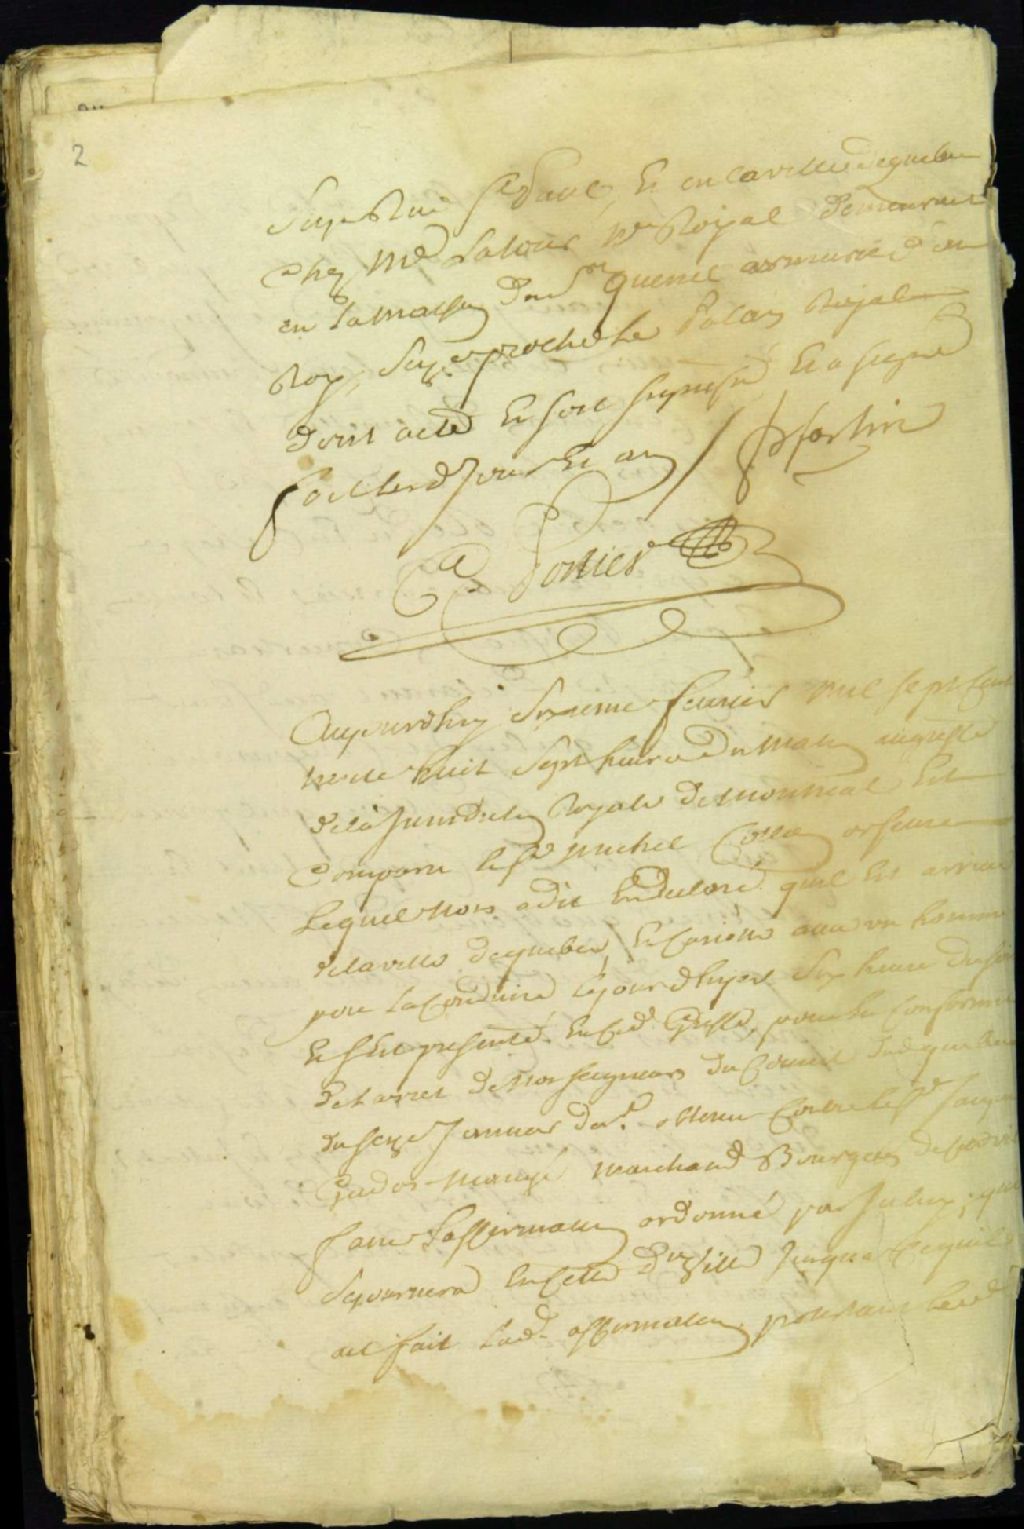 2
Size Rue St Paul, Et en la ville de quebec
Chez Me Latour Nre Royal demeurant
en la maison du Sr quenel armurier du
Roy, Size proche le Palais Royal
dont acte Et sont signifié Et a signé
fait lesd Jour Et an / Fortin
Porlier
Aujourdhuy Sixieme feurier mil sept Cent
trente huit Sept heures du Matin au greffe
de la Jurisdiction Royale de Montreal Est
Comparu le Sr Michel Cotton orfeure
Lequel Nous a dit Et declaré quil Est arrivé
de la ville de quebec, En Cariolle avec un homme
pour La Conduire Le jour dhyer Six heures du soir
Et sest presenté En Ced. Greffe, pour En Conformité
de Larret de Nosseigneurs du Conseil
du seize Januier der. obtenu Contre le Sr Jacques
Gadois Maugé Marchand Bourgeois de
faire Laffirmation ordonné par Iceluy, que
Sejournera En Cette d. Ville Jusqua Ce quil
ait fait Lad. affirmation, protestant